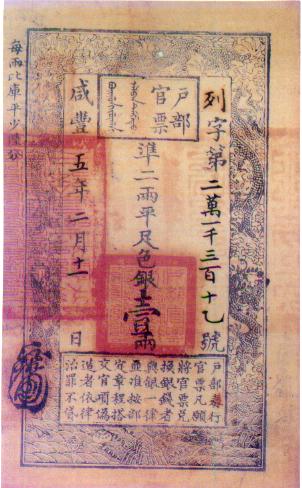 戶部
官票
列字第二萬一千三百十號
準二兩平足色銀壹兩
咸豐五年二月十一日
戶部奏行
官票凡願
將官票兌
換銀錢者
與銀一律
並准按部
定章程搭
交官項偽
造者依律
治罪不貸
每兩比庫平少陸分